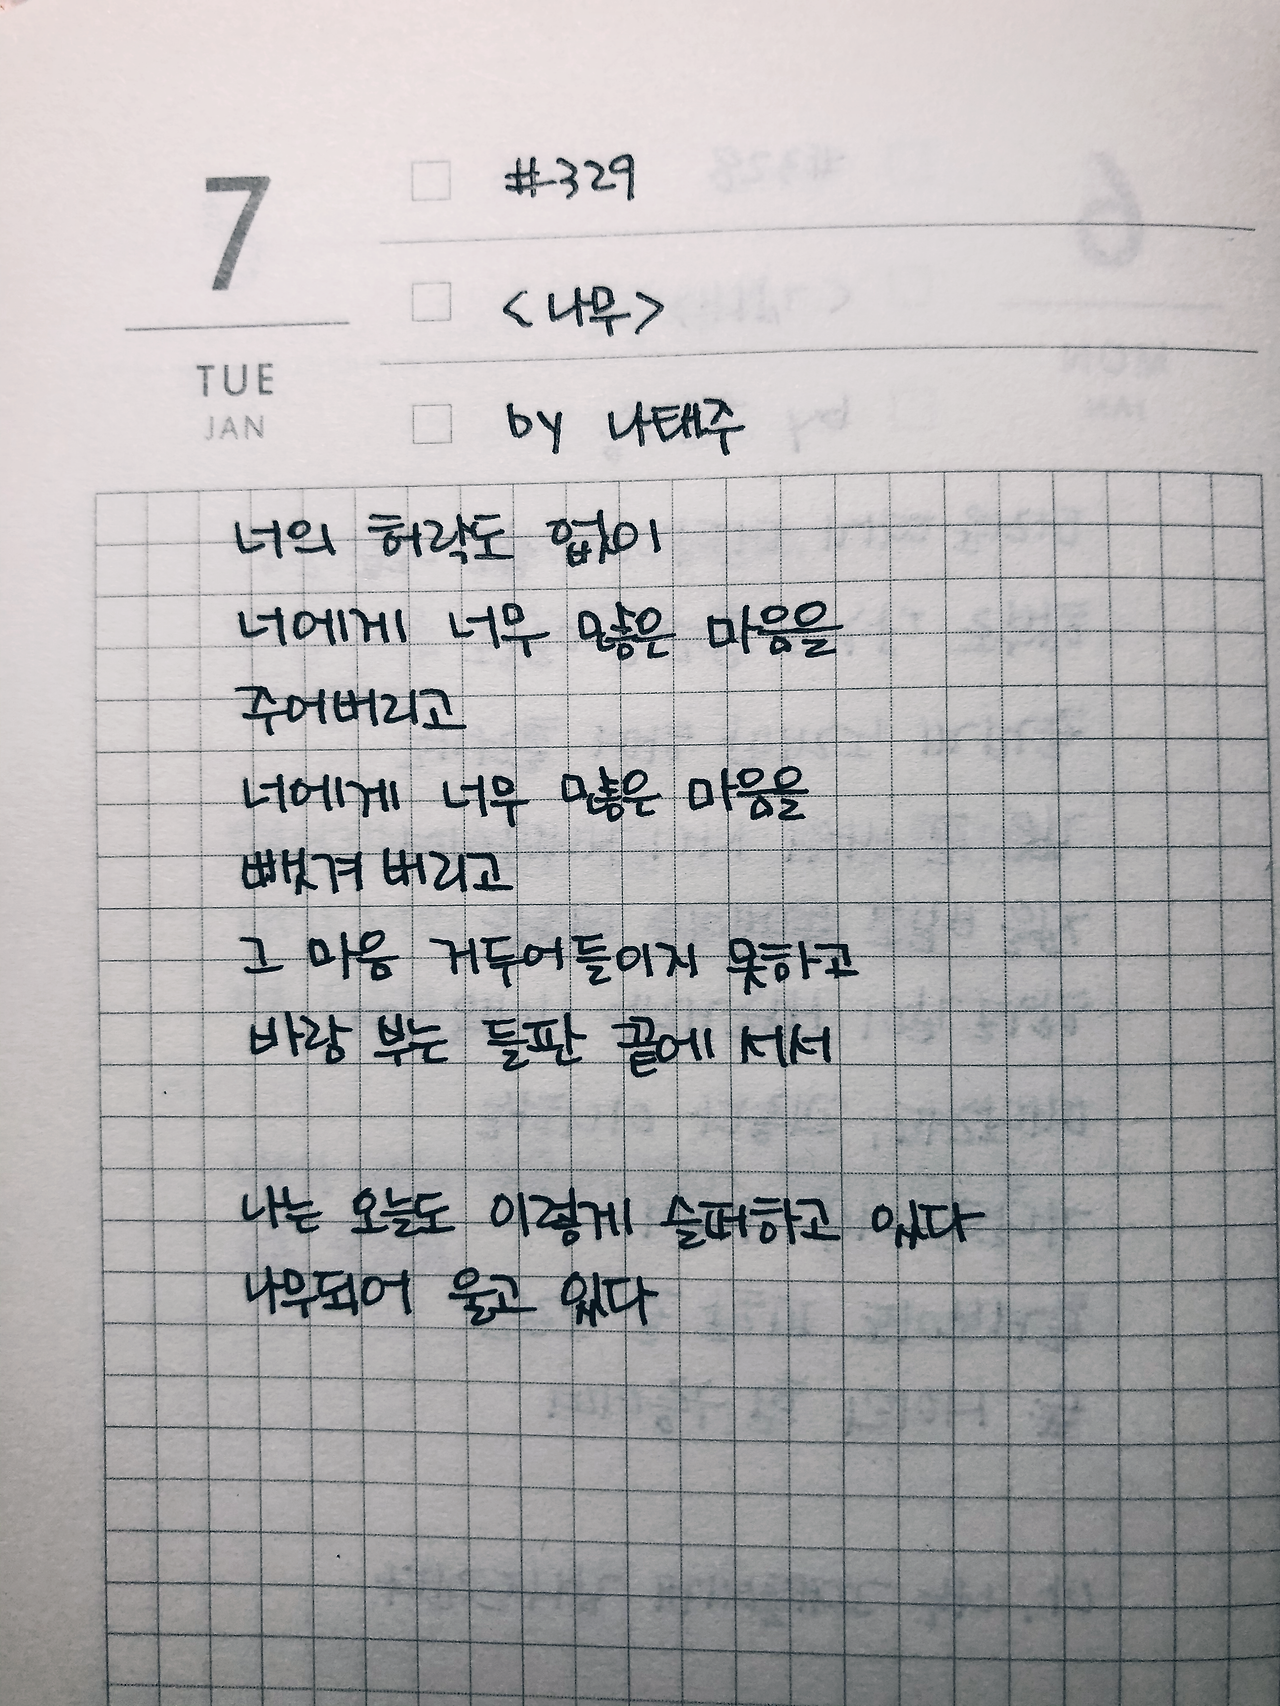 7
TUE
JAN
#329
<나무>
by 나태주
너의 허락도 없이
너에게 너무 많은 마음을
주어버리고
너에게 너무 많은 마음을
뺏겨 버리고
그 마음 거두어들이지 못하고
바람 부는 들판 끝에 서서
나는 오늘도 이렇게 슬퍼하고 있다
나무되어 울고 있다